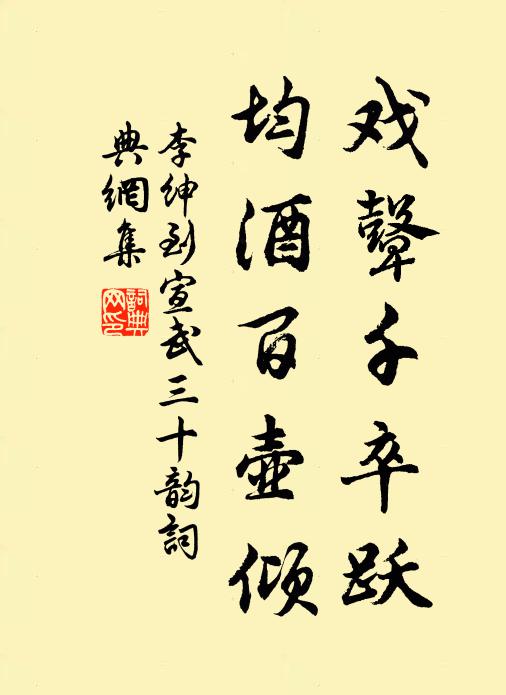 戏鼙千卒跃
均酒百壺倾
李紳到宣武三十韵詞
典網集
詞典
网印